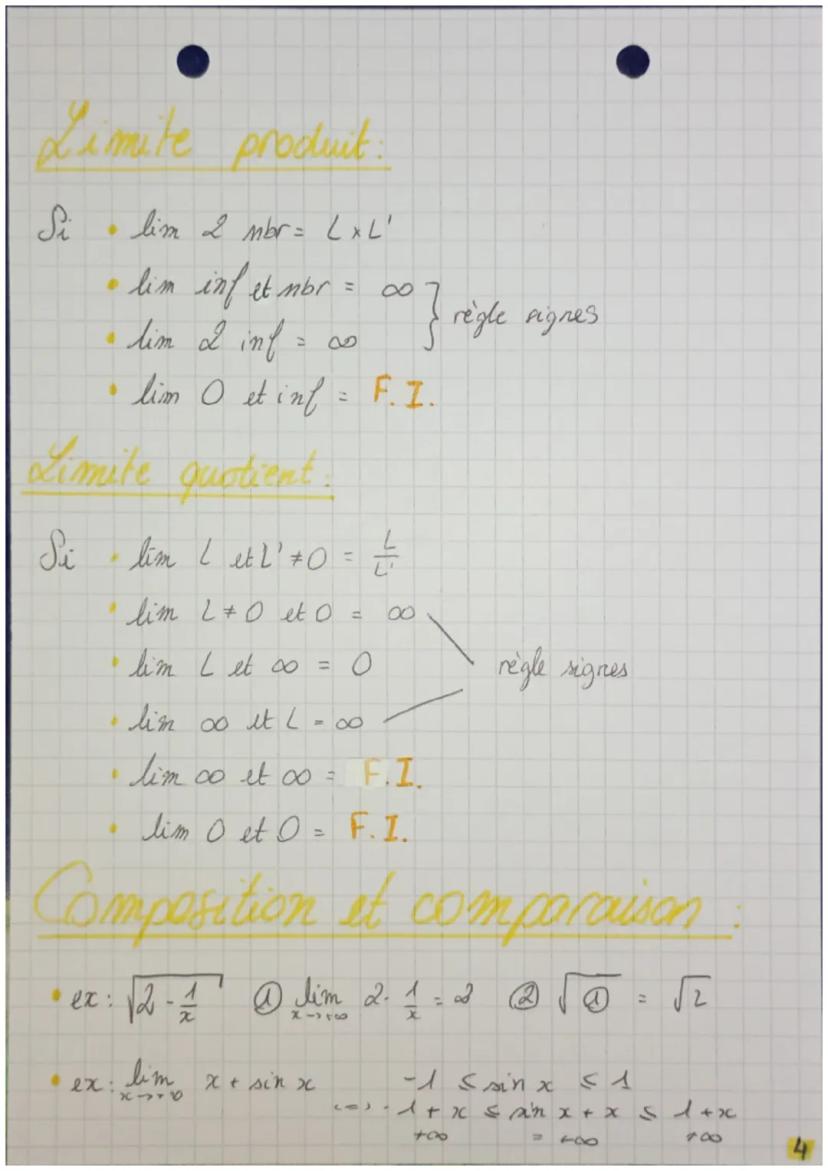 Limite produit:
Si • lim 2 nbr = L x L'
• lim inf et nbr = ∞ } règle signes
• lim 2 inf = ∞
• lim 0 et inf = F.I.
Limite quotient:
Si • lim L et L' ≠ 0 = L/L'
• lim L ≠ 0 et 0 = ∞
• lim L et ∞ = 0 règle signes
• lim ∞ et L = ∞
• lim ∞ et ∞ = F.I.
• lim 0 et 0 = F.I.
Composition et comparaison:
• ex: √(2 - 1/x) ① lim x→+∞ 2 - 1/x = 2 ② √① = √2
• ex: lim x→+∞ x + sin x -1 ≤ sin x ≤ 1
<=> -1 + x ≤ sin x + x ≤ 1 + x
+∞ = +∞ +∞
4